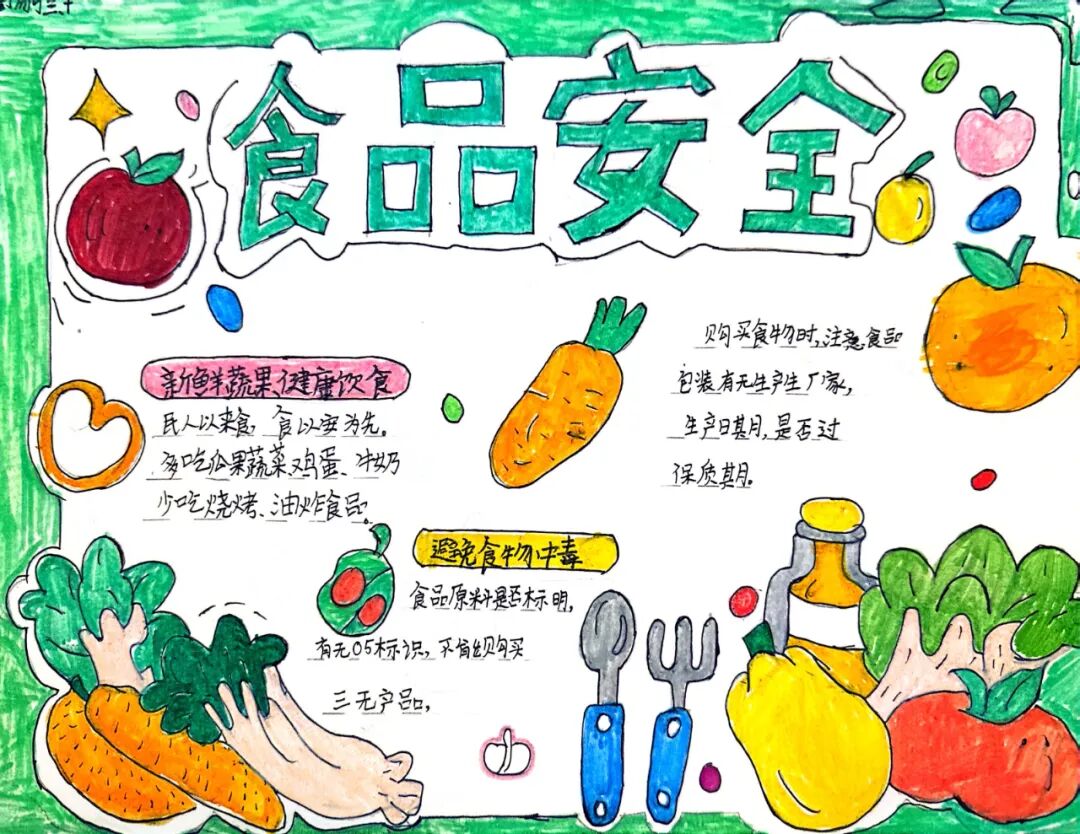 食品安全
新鲜蔬果、健康饮食
民人以来食, 食以安为先。
多吃瓜果蔬菜、鸡蛋、牛奶
少吃烧烤、油炸食品。
避免食物中毒
食品原料是否标明,
有无05标识, 不购买
三无产品,
购买食物时,注意食品
包装有无生产生厂家,
生产日期,是否过
保质期。